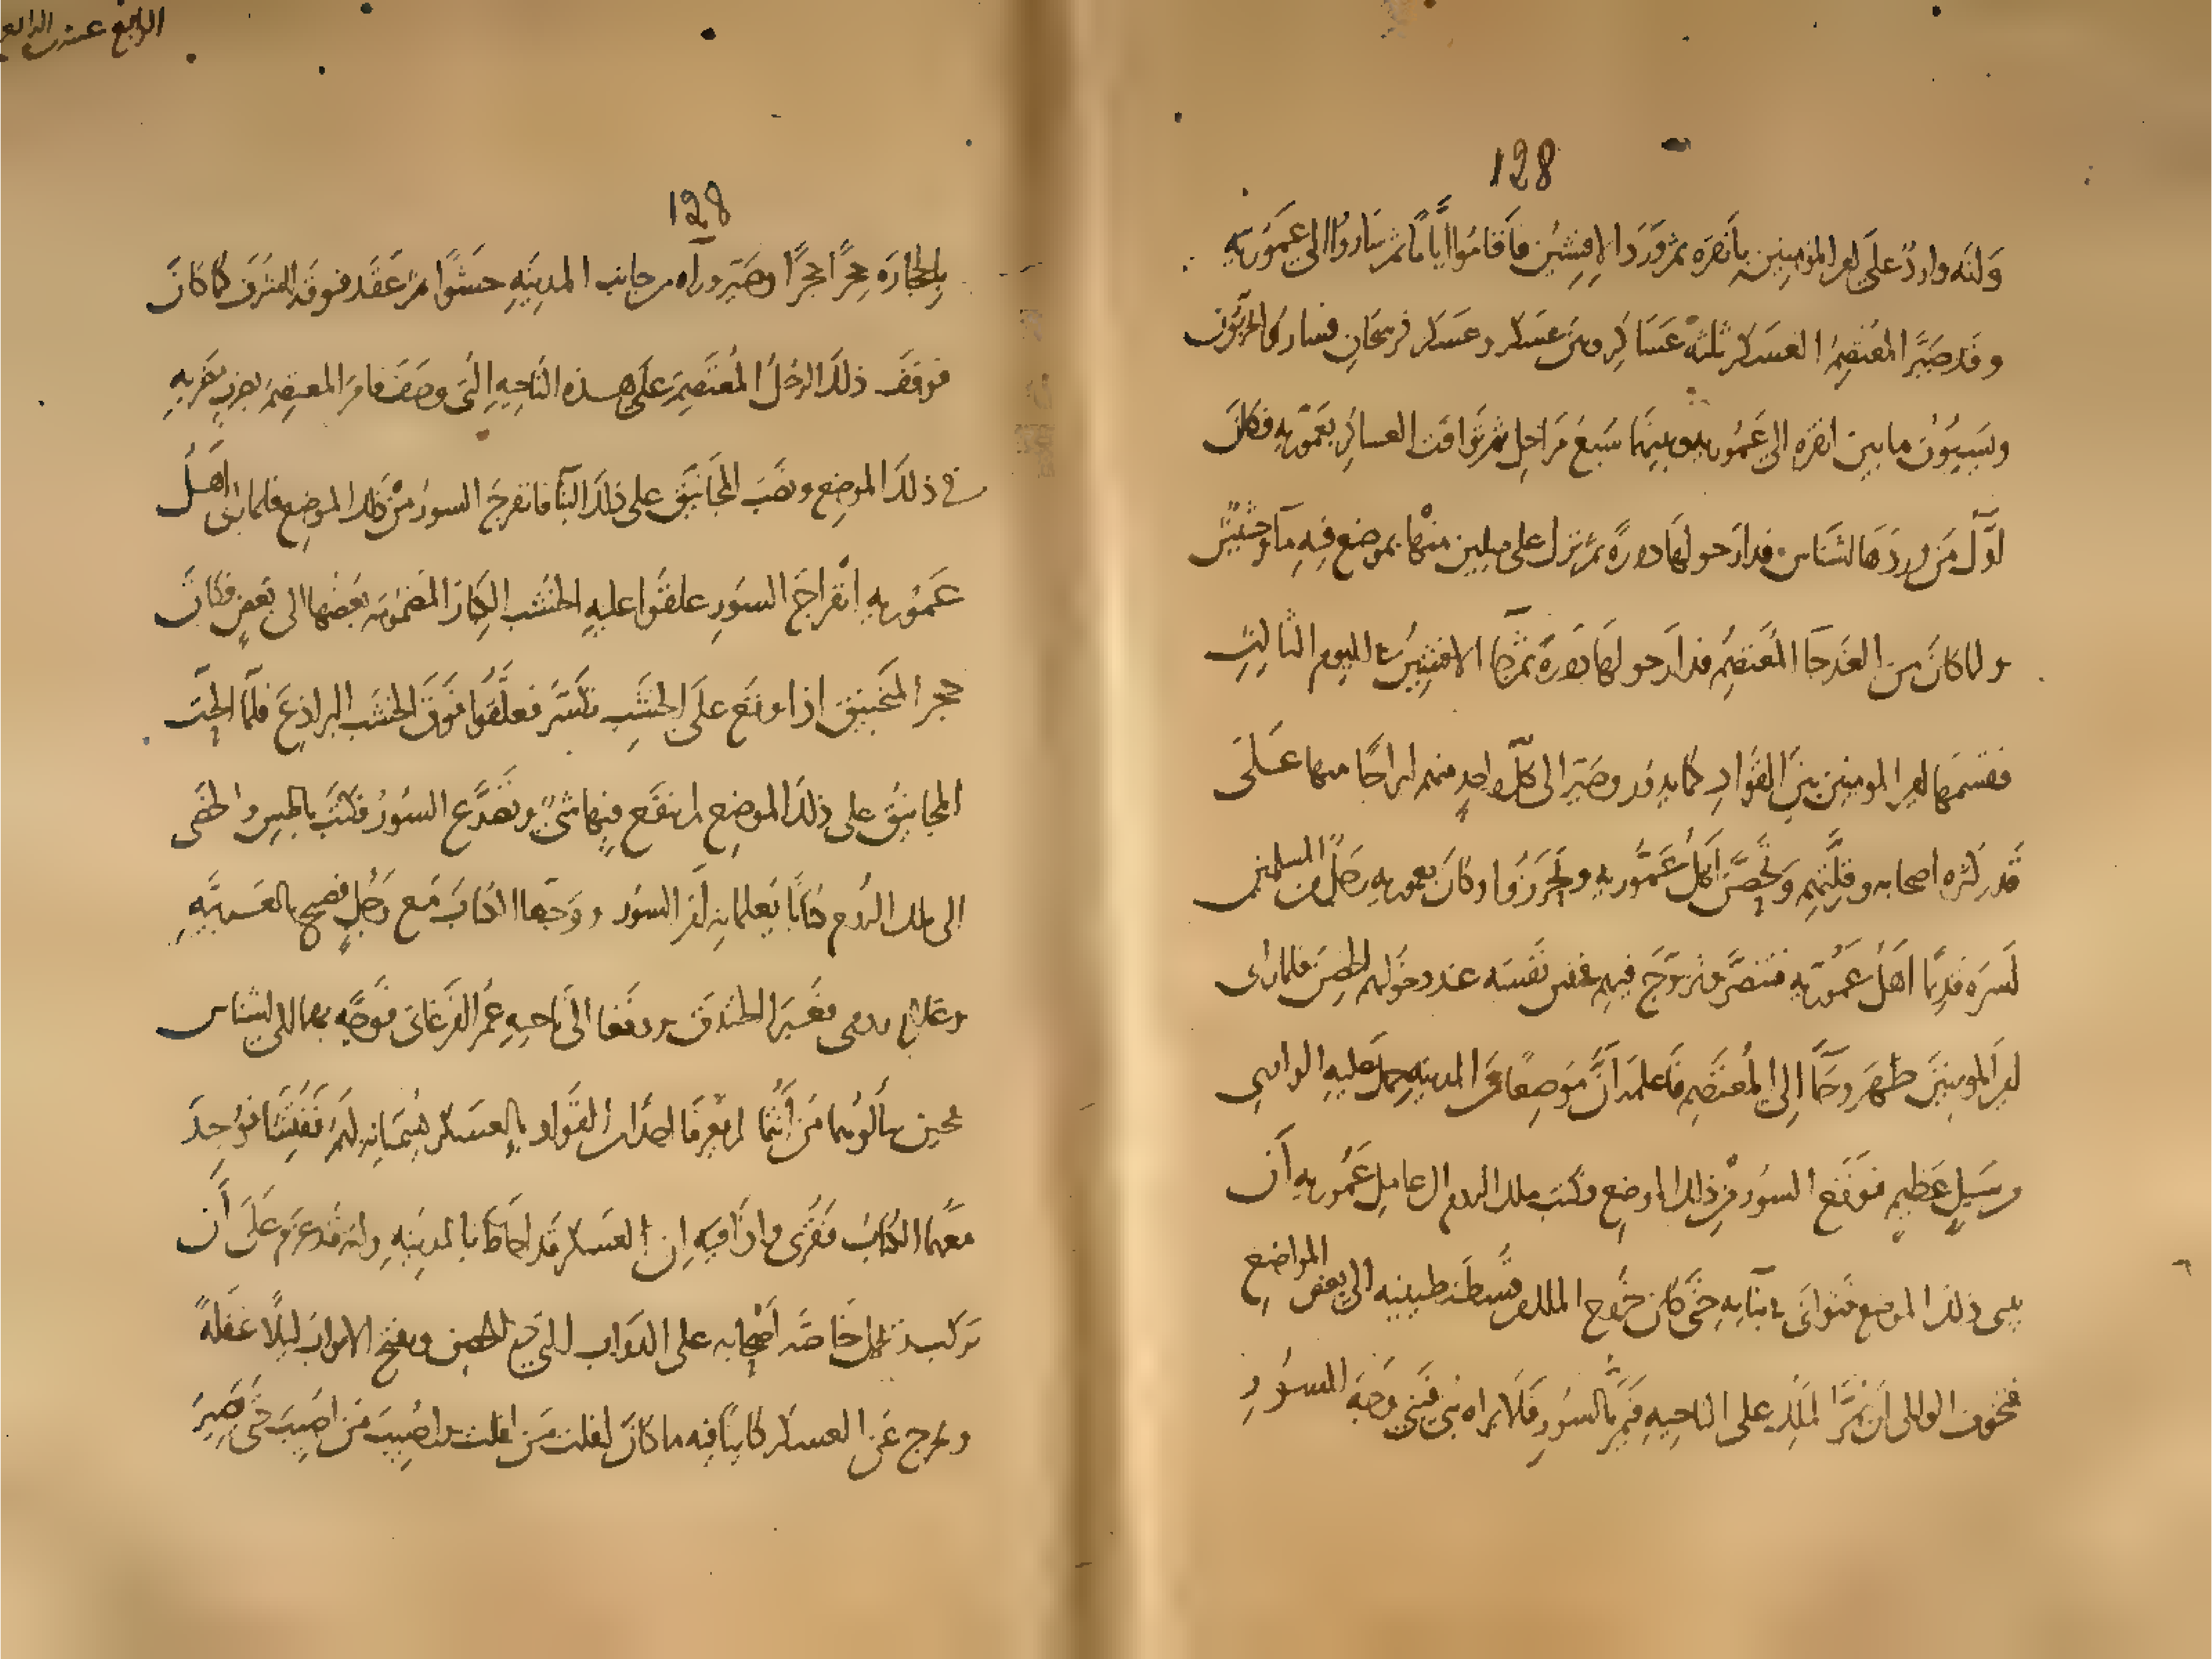 128
وَانّه واردٌ علَى امير المؤمنين بانقره ثم وَرَدَ الافشين فاقامُوا ايَّامًا ثم سَاروُا الى عَمّورَيه
وقد صَيَّرَ المُعْتصِمُ العسَكر ثلثة عَسَاكِر وبين عسَكر وعَسكر فرسخان فساروا يخربون
ويَسبُون ما بين انقرَه الى عَمُوريه وبينهَما سَبعَ مَرَاحِل ثمّ توافت العساكِر بعَمّوريه فكانَ
اوَّلَ مَن وردَهَا اشنَاس فدارَ حولها دورةً ثم نزل على ميلين منها بموضع فيه مآء وحشيش
ولما كانَ من الغَد جآ المُعتصِم فدارَ حولها دَورةً ثم جآ الافشين في اليوم الثالث
فقسمَها امير المومنين بين القُوادِ كما يدور وصَيّر الى كلِّ واحدٍ منهم ابراجًا منها عَلى
قَدر كثره اصحابه وقلّتهِم وَتحصَّنَ اهلُ عَمُّوريه وتحرَزُوا وكانَ بعموريه رَجُل من المسلمين
اسَره قديمًا اهَل عَمّوريه فتنصَّر وتزوَّج فيهم فحبس نفسَه عند دخولهم الحصن فلما رأى
امير المومنين ظهَرَ وجَآ الى المُعتصِم فاعلمه انَّ مَوضِعًا مِن المدينه حمل عليه الوادى
من سَيلٍ عظيمٍ فوقَعَ السوُر من ذلك الموضع وكتب ملك الروم الى عامل عَمّوريه أن
يبنى ذلك الموضع فتوانَى فى بنآيه حَتَّى كانَ خرُوج الملك من قسطنطينيه الى بعض المواضع
فتخوف الوالى ان يَمُرَّ الملك على الناحيه فيَمُرّ بالسور فَلَا يراه بُنى فبنى وَجه السوُرِ
128
بالحجارَه حجرًا حجرًا وصَيّر وراه من جانب المدينه حَشوًا ثم عَقَد فوقه الشرَف كما كانَ
فوقَفَ ذلك الرجُلُ المُعتصِمَ علَى هذه الناحيه التى وصَفَ فامَر المعتصِمُ بضربِ مضَربه
فى ذلك الموضع ونصَبَ المجانيق على ذلك البنآ فانفرجَ السورُ من ذلك الموضع فلما رأى اهَلُ
عَموُريه انفراجَ السوُر علقوا عليه الخشب الكبار المضمومه بعضها الى بعض فكانَ
حجر المنجنيق اذا وقع علَى الخشَبِ تكسَّر فعلَّقوا فوَقَ الخشب البراذِعَ فلمّا الحَّت
المجانيق على ذلك الموضع لم ينفع فيها شَىٌ وتصَدَّع السوُرُ فكتبَ ياطس والخصى
الى ملك الروم كتابًا يُعلمانه امر السوُر ووجّها الكتابَ مَع رجُلٍ فصيح بالعَربيَّه
وغلام رومى فعَبرا الخندق ووقَعَا الى ناحيه عمر الفرغانى فوَجّه بهما الى اشناس
فحين سألوُهما مَن أنتُما لم يعرِفا احدًا من القوادِ بالعسكر يُسَمِّيانه لهم فَفُتِّشا فوُجِدَ
معَهما الكتابُ فقرُى واذا فيه ان العسَكر قد احَاطَ بالمدينه وانه قد عزم علَى أن
يَركب ويحمل خاصَّه اصحَابه على الدَواب التى فى الحصِن ويفتح الابواب ليلًا غفلهً
ويخرج عَلى العسكر كاينًا فيه ما كانَ افلت من افلت واصُيبَ مَن اصُيِبَ حَتَّى يصَير